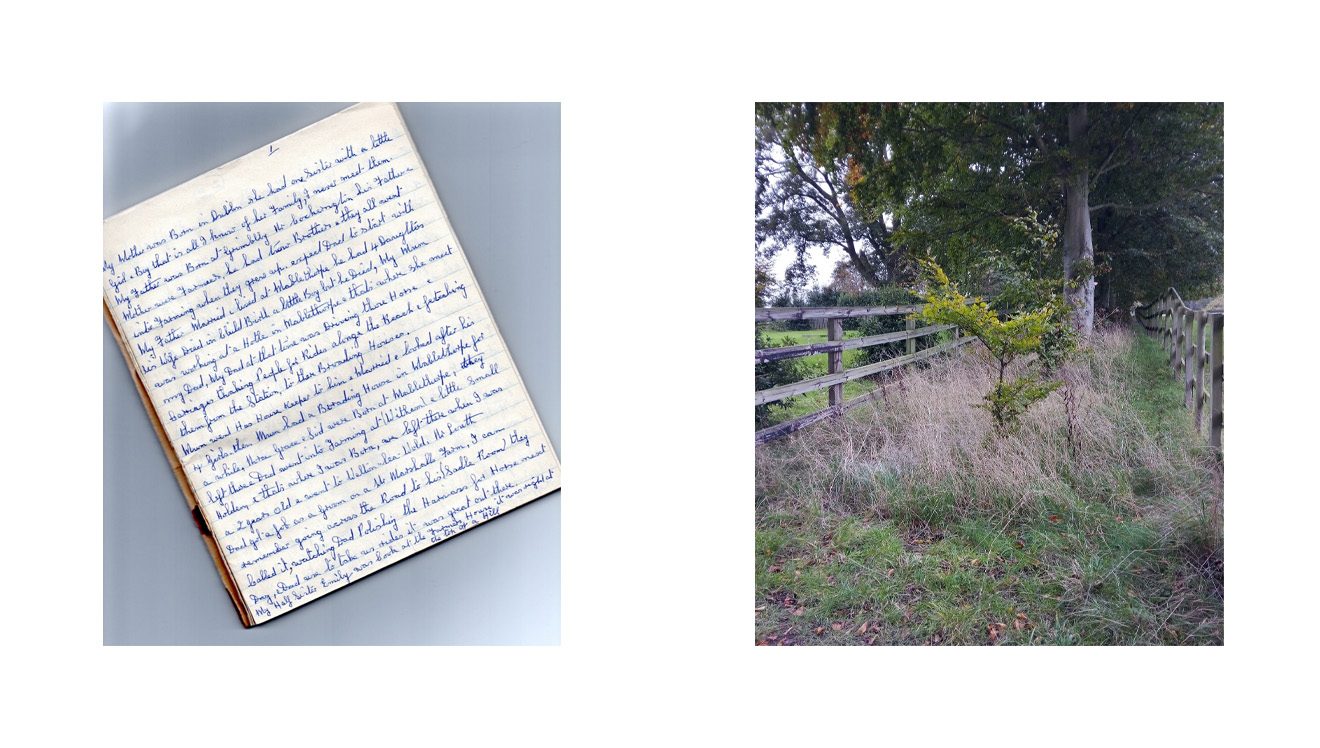 1
My Mother was Born in Dublin she had one Sister with a little
Girl & Boy that is all I know of her Family, I never meet them.
My Father was Born at Grimblby Nr Lockington his Father &
Mother were Farmers, he had two Brothers & they all went
into Farming when they grew up. expect Dad to start with
My Father Married & lived at Mablethorpe he had 4 Daughters
his Wife Died in Child Birth a little Boy but he Died, My Mum
was working at a Hotle in Mablethorpe & that's where she meet
my Dad, My Dad at that time was Driving those Horse &
Carrages thaking People for Rides along the Beach & fetching
them from the Station, to thier Boarding Houses.
Mum went Has House Keeper to him & Married & looked after his
4 Girls then Mum had a Boarding House in Mablethorpe for
a while, then Grace & Sid were Born at Mablethorpe, they
left there & Dad went into Farming at Withern & little Small
Holden, & thats where I was Born, we left there when I was
a 2 years old & went to Welton-le-Wold. Nr Louth
Dad got a job as a Groom on a Mr Marshalls Farm, I can
remember going across the Road to his (Sadle Room) they
called it, watching Dad Polishing the Harness for Horse meet
Day, & Dad use to take us rides it was great out there.
My Half Sister Emily was Cook at the Farmer House it was right at
the top of a Hill